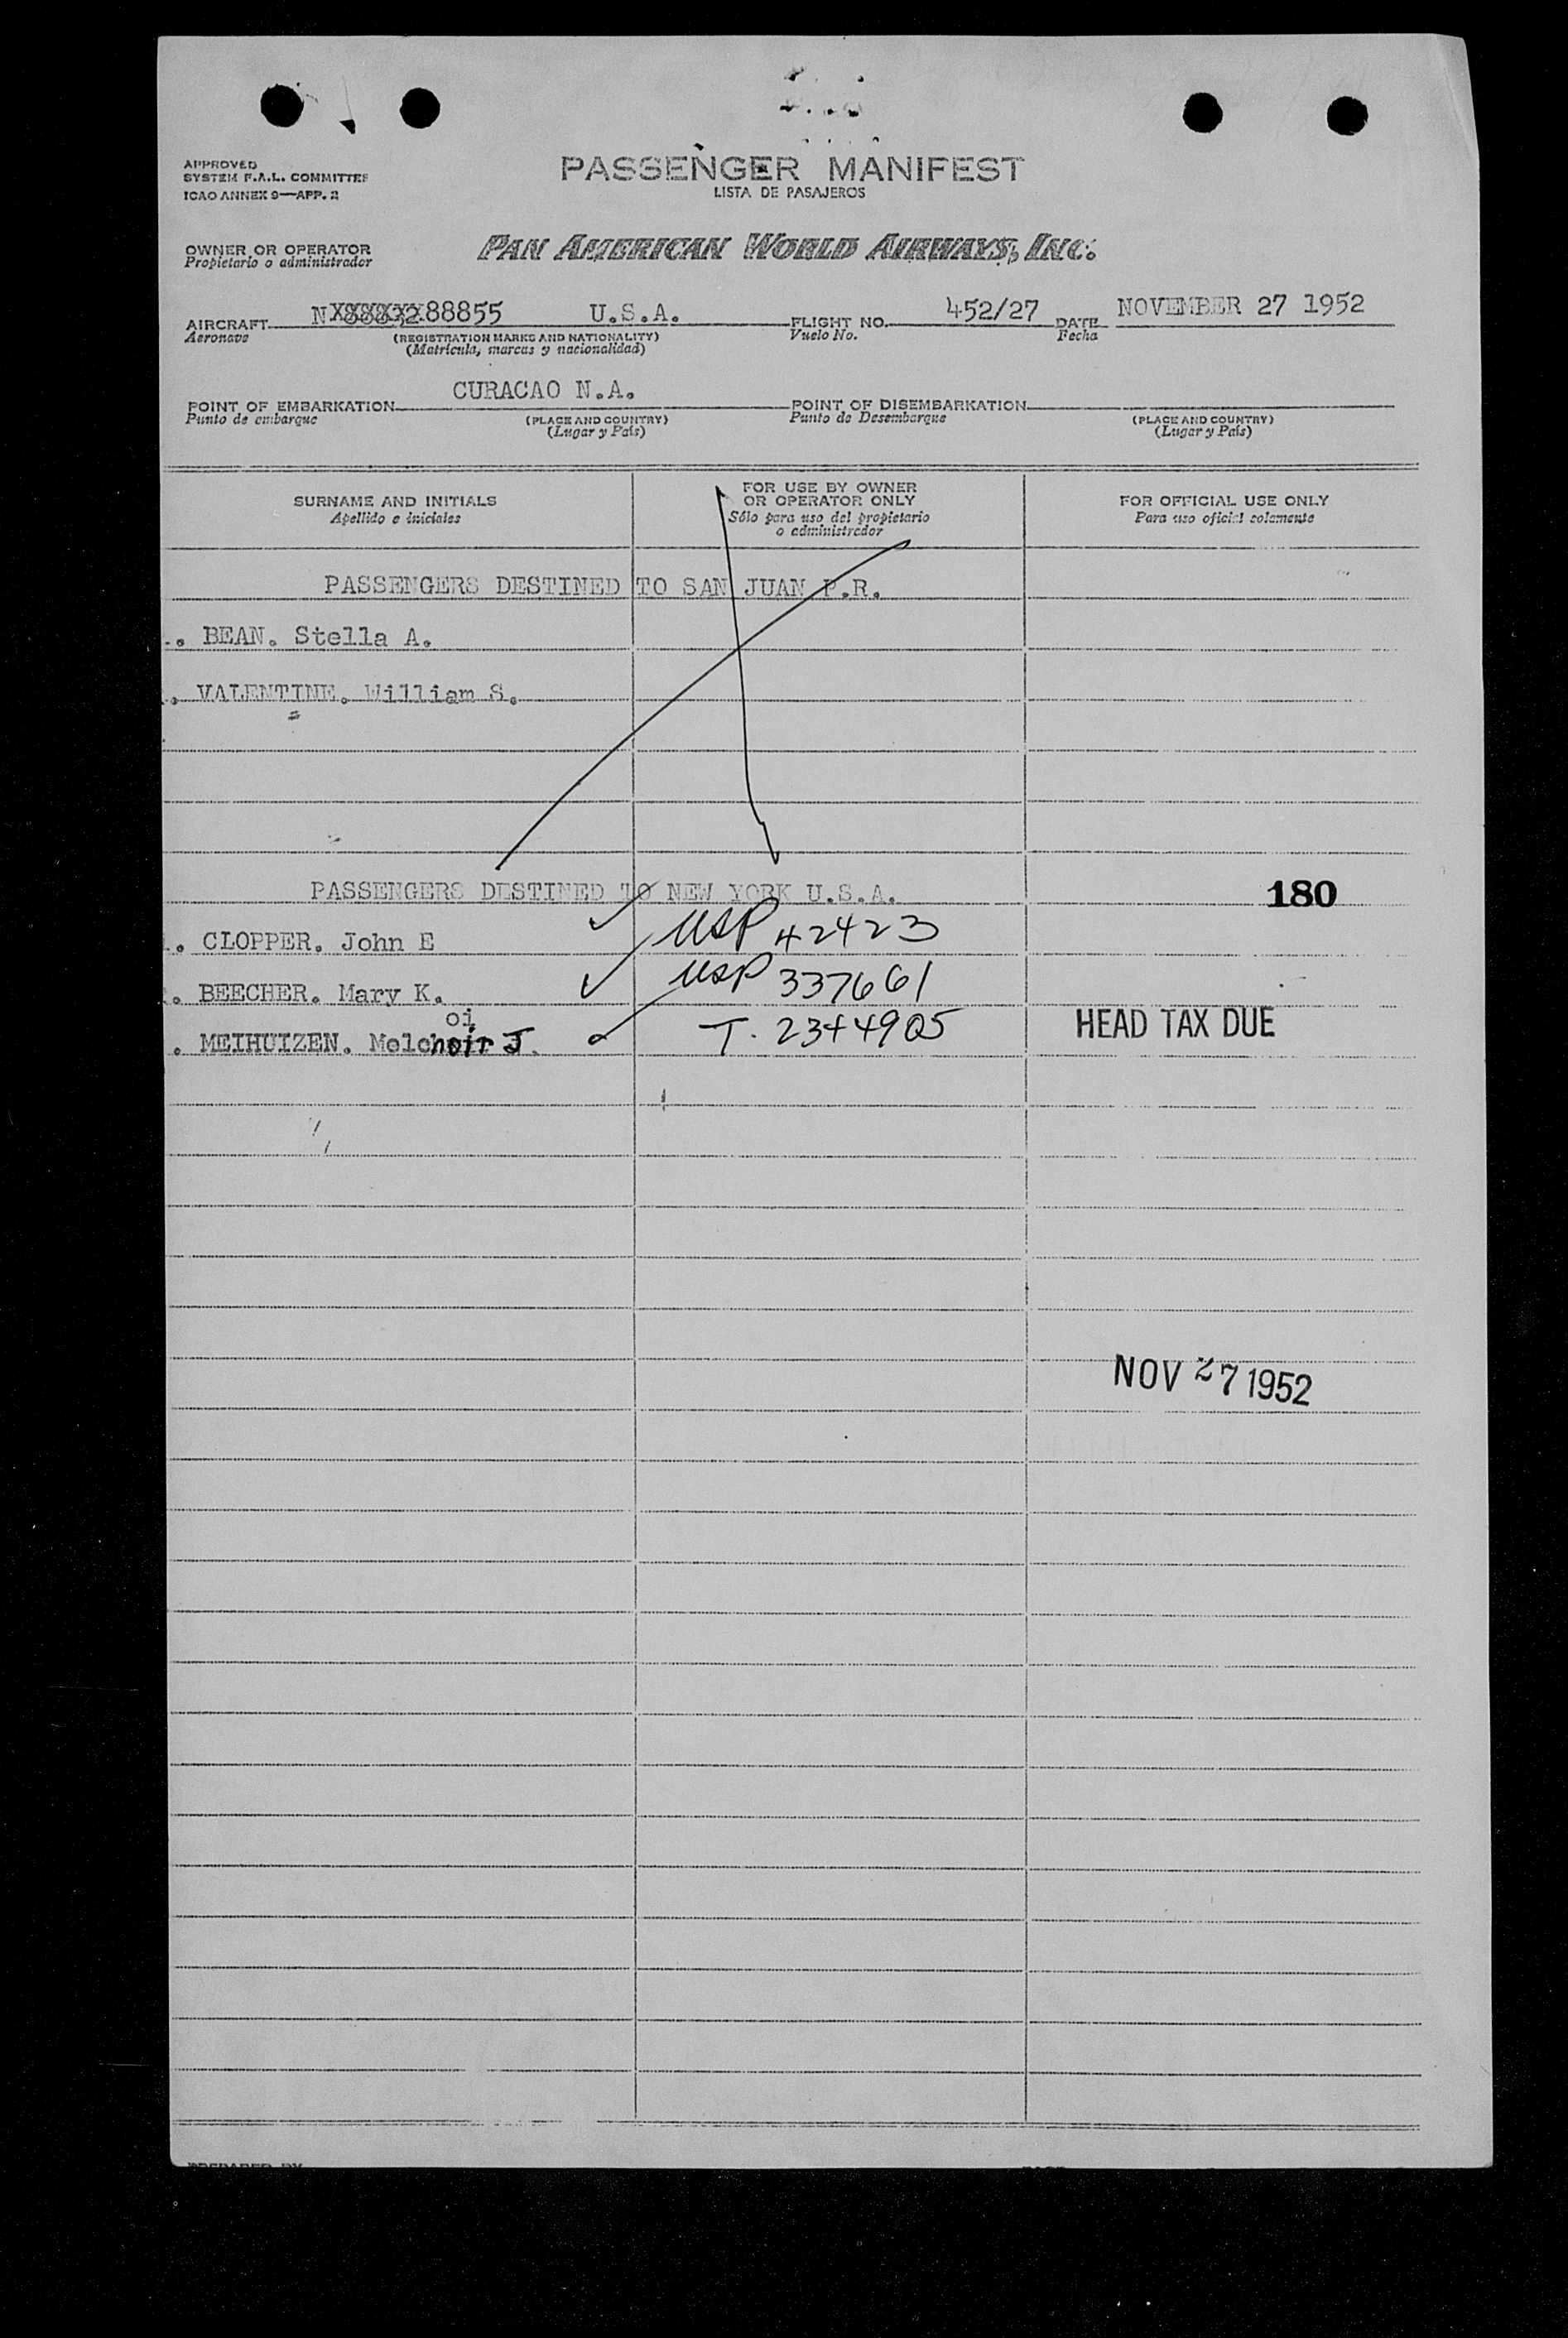 APPROVED
SYSTEM F.A.L. COMMITTEE
ICAO ANNEX 9—APP. 2
PASSENGER MANIFEST
LISTA DE PASAJEROS
OWNER OR OPERATOR
Propietario o administrador
PAN AMERICAN WORLD AIRWAYS, INC.
AIRCRAFT N 88855 U.S.A. FLIGHT NO. 452/27 DATE NOVEMBER 27 1952
Aeronave (REGISTRATION MARKS AND NATIONALITY) Vuelo No. Fecha
(Matrícula, marcas y nacionalidad)
POINT OF EMBARKATION CURACAO N.A. POINT OF DISEMBARKATION
Punto de embarque (PLACE AND COUNTRY) Punto de Desembarque (PLACE AND COUNTRY)
(Lugar y País) (Lugar y País)
SURNAME AND INITIALS
Apellido e iniciales
FOR USE BY OWNER
OR OPERATOR ONLY
Sólo para uso del propietario
o administrador
FOR OFFICIAL USE ONLY
Para uso oficial solamente
PASSENGERS DESTINED TO SAN JUAN P.R.
. BEAN. Stella A.
. VALENTINE. William S.
PASSENGERS DESTINED TO NEW YORK U.S.A. 180
. CLOPPER. John E USP 42423
. BEECHER. Mary K. USP 337661
oi
. MEIHUIZEN. Melchoir J. T. 2344905 HEAD TAX DUE
NOV 27 1952
PREPARED BY